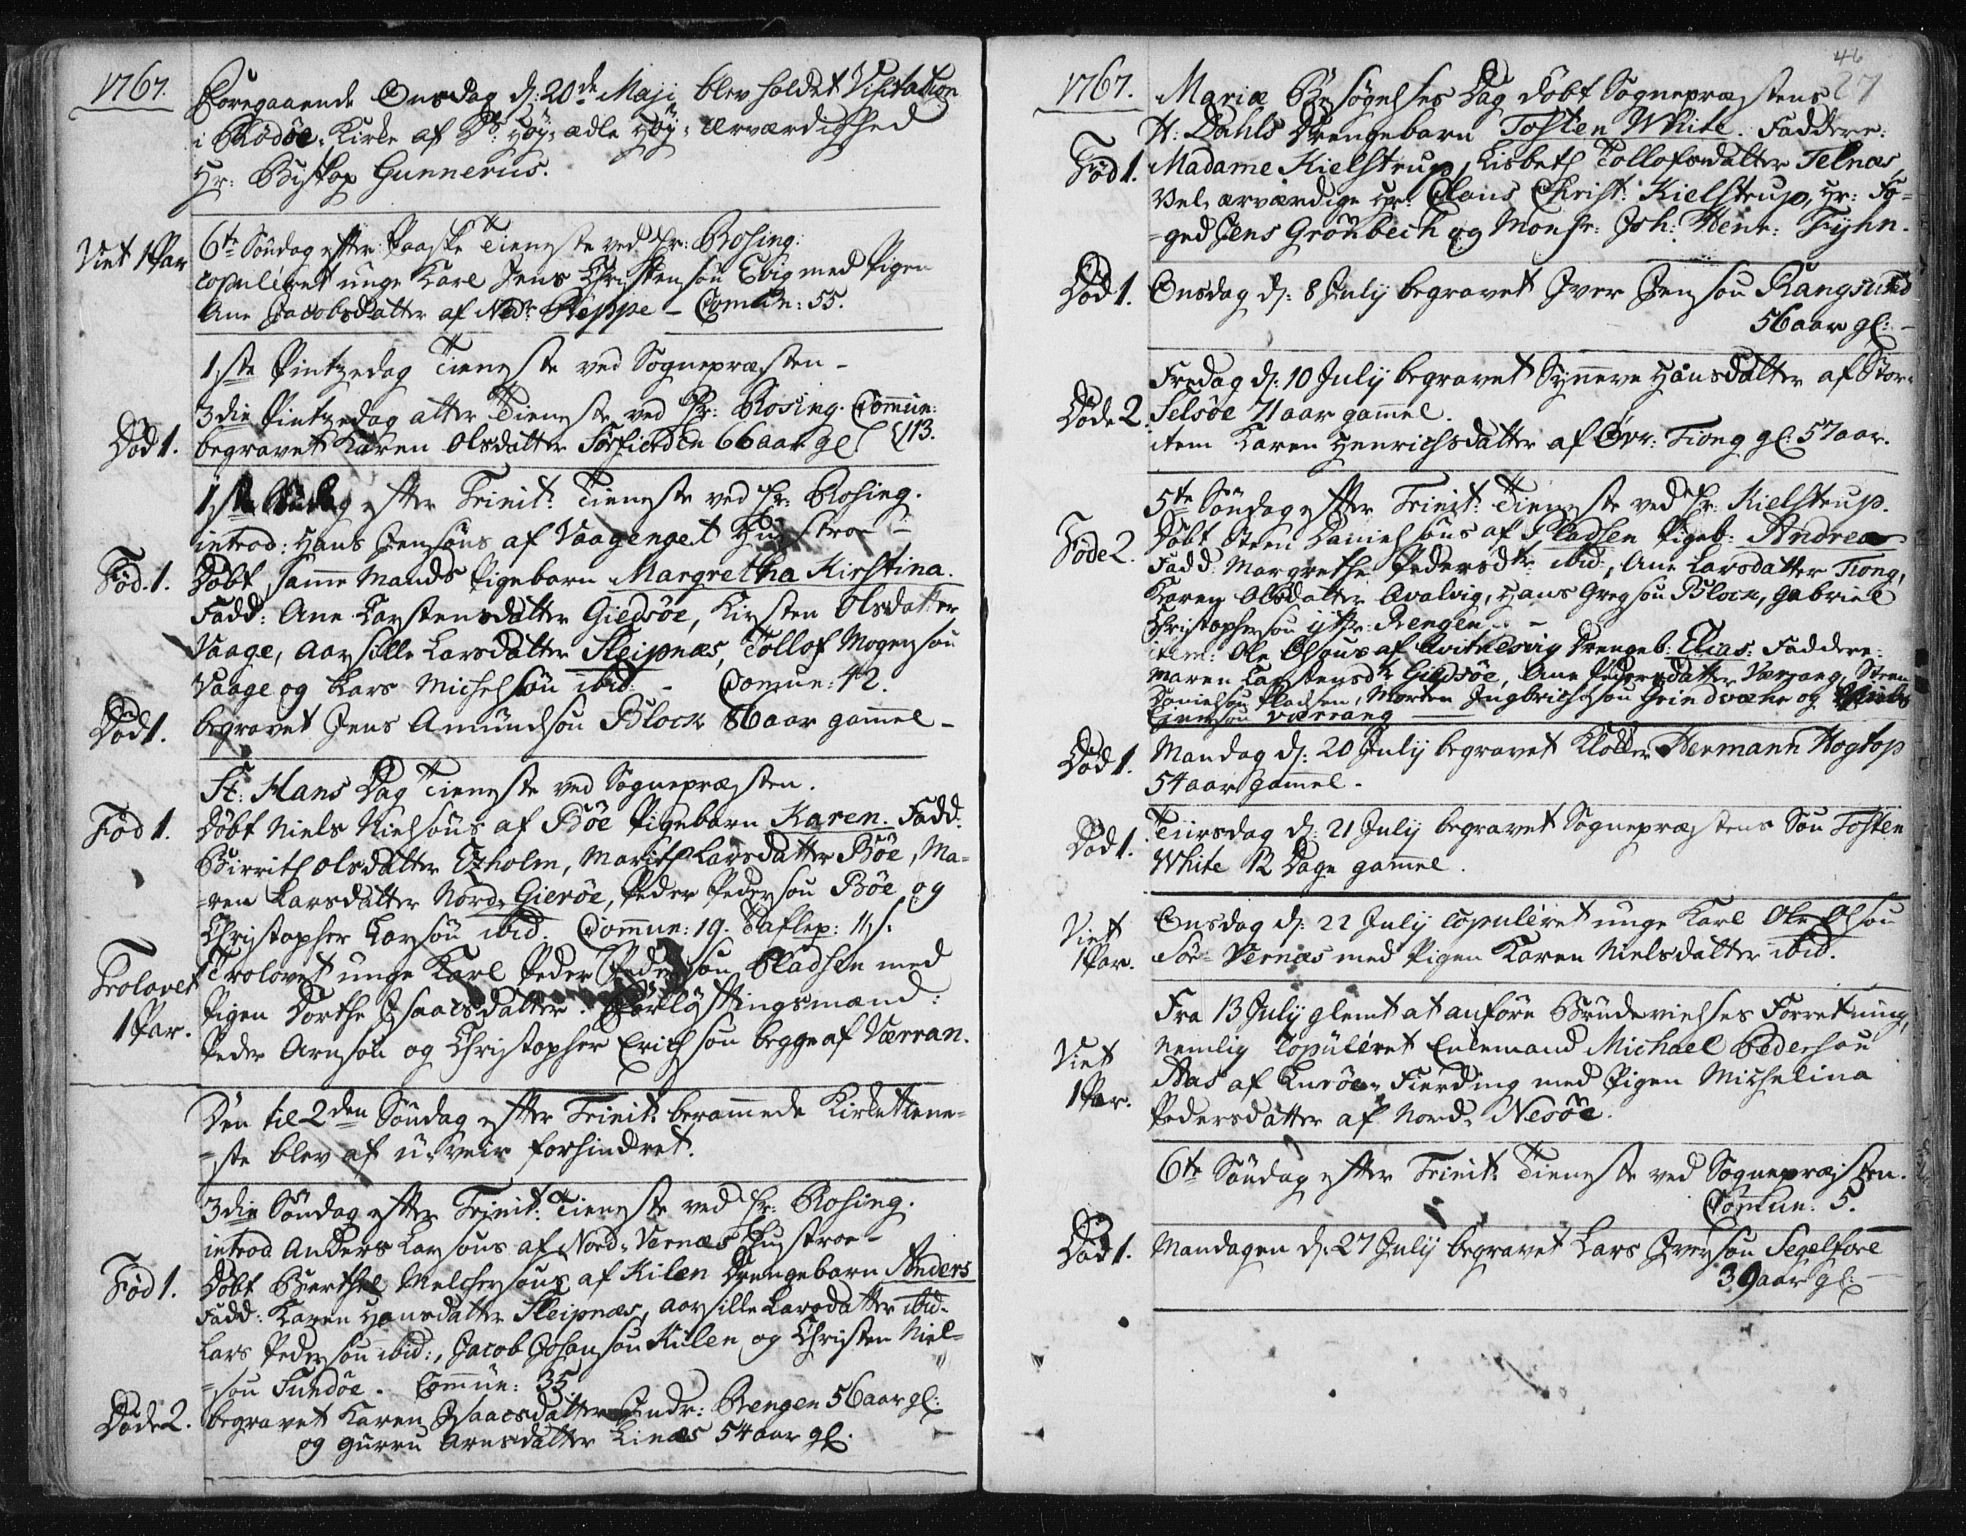 1767.
Foregaaende Onsdag d: 20de Maji blev holdet Visitation
i Rodøe Kirke af Høy-ædle Høy-ærværdighed
Hr: Biskop Gunnerus.
Viet 1 Par
6te Søndag efter Paaske Tieneste ved Hr: Rosing:
copuleret unge Karl Jens Christensøn Evig med Pigen
Ane Jacobsdatter af Nedr Reppe – Comun: 55.
1ste Pintzedag Tieneste ved Sognepræsten –
3die Pintzedag atter Tieneste ved Hr: Rosing. Commun:
Død 1.
begravet Karen Olsdatter Sørfiorden 66 aar gl { 113.
1ste Søndag efter Trinit: Tieneste ved Hr: Rosing.
introd: Hans Jensøns af Vaagenget Hustroe –
Fød. 1.
Døbt samme Mands Pigebarn Margretha Kirstina.
Fadd: Ane Carstensdatter Giedsøe, Kirsten Olsdatter
Vaage, Aarsille Larsdatter Sleipnæs, Tollof Mogensøn
Vaage og Lars Michelsøn ibid: – Comun: 42.
Død 1.
begravet Jens Amundsøn Block 86 aar gammel –
St: Hans Dag Tieneste ved Sognepræsten.
Fød 1.
Døbt Niels Nielsøns af Bøe Pigebarn Karen. Fadd.
Birrith Olsdatter Exholm, Marith Larsdatter Bøe, Ma-
=ren Larsdatter Nord-Gierøe, Peder Pedersøn Bøe og
Christopher Larsøn ibid. Commun: 19.
Trolovet
1 Par.
Trolovet unge Karl Peder Pedersøn Pladsen med
Pigen Dorthe Isaacsdatter. Forløftningsmænd:
Peder Arnsøn og Christopher Erichsøn begge af Værran.
Den til 2den Søndag efter Trinit: berammede Kirketiene=
=ste blev af u-veir forhindret.
3die Søndag efter Trinit: Tieneste ved Hr: Rosing.
introd Anders Larsøns af Nord-Vernæs Hustroe –
Fød 1.
Døbt Berthel Melchersøns af Kilen Drengebarn Anders
Fadd: Karen Hansdatter Sleipnæs, Aarsille Larsdatter ibid.
Lars Pedersøn ibid:, Jacob Johansøn Kilen og Christen Niel=
=søn Sundøe. Commun: 35.
Døde 2.
begravet Karen Isaacsdatter Indr: Rengen 56 aar gl:
og Gurru Arnsdatter Linæs 54 aar gl.
46
27
1767.
Mariæ Besøgelses Dag døbt Sognepræstens
H: Dahls Drengebarn Tosten White. Faddere:
Fød 1.
Madame Kielstrup, Lisbeth Tollofsdatter Selnæs
Vel-ærværdige Hr: Claus Christ: Kielstrup, Hr: Fo=
=ged Jens Grønbech og Monsr: Joh: Henr: Fyhn.
Død 1.
Onsdag d: 8 July begravet Iver Jensøn Rangsund
56 aar gl: –
Fredag d: 10 July begravet Synneve Hansdatter af Stor-
Døde 2.
Selsøe 71 aar gammel.
item Karen Henrichsdatter af Øvr: Tiong gl: 57 aar.
5te Søndag efter Trinit: Tieneste ved Hr: Kielstrup.
Føde 2.
Døbt Steen Danielsøns af Pladsen Pigeb: Andrea
Fadd: Margrethe Pedersdtr ibid:, Ane Larsdatter Tiong,
Karen Olsdatter Qvalvig, Hans Gregsøn Block, Gabriel
Christophersøn ytr: Rengen –
item: Ole Olsøns af Qvitnesvig Drengeb: Elias: Faddere:
Maren Carstensdr Giedsøe, Ane Pedersdatter Værrang, Steen
Danielsøn Pladsen, Morten Ingbrichtsøn Grindvære og
Værrang
Død 1.
Mandag d: 20 July begravet Klokker Hermann Hogtop
54 aar gammel –
Død 1.
Tiirsdag d: 21 July begravet Sognepræstens Søn Tosten
White 12 Dage gammel.
Viet
1 Par.
Onsdag d: 22 July copuleret unge Karl Ole Olsøn
Sør-Vernæs med Pigen Karen Nielsdatter ibid.
Fra 13 July glemt at anføre Brudevielses Forretning,
Viet
1 Par.
nemlig Copuleret Enkemand Michael Pedersøn
Aas af Lurøe-Fierding med Pigen Michelina
Pedersdatter af Nord-Nesøe.
6te Søndag efter Trinit: Tieneste ved Sognepræsten.
Comun: 5.
Død 1.
Mandagen d: 27 July begravet Lars Iversøn Segelfore
39 aar gl: –